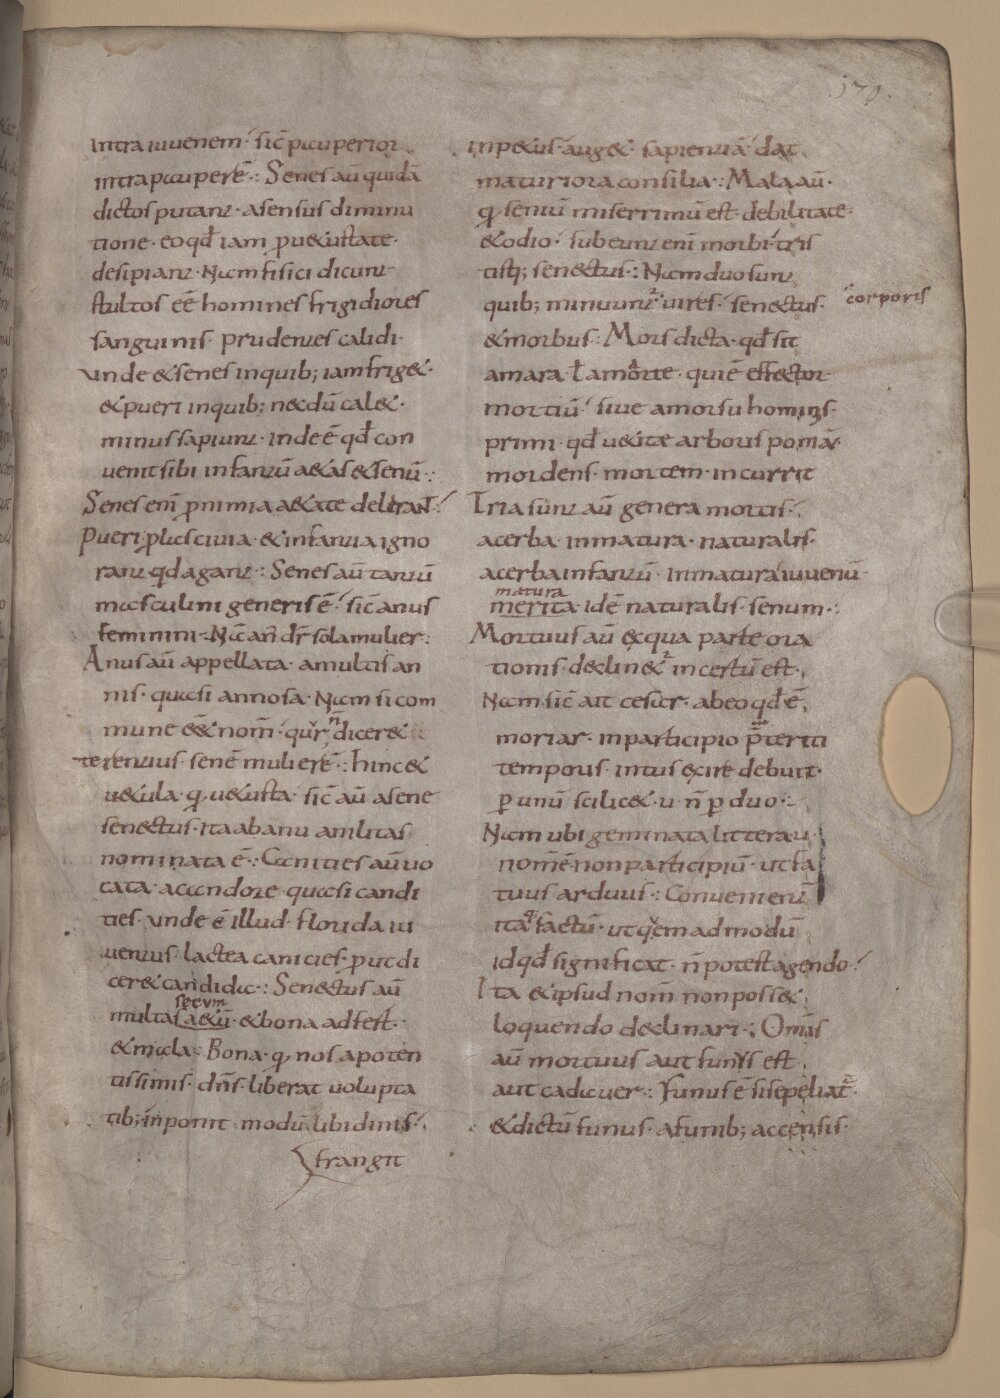 171.
intra iuuenem· sic̄ pauperior
intra pauperē·: Senes aū quidā
dictos putant· a sensus diminu
tione· eo qđ iam p̱ uetustate·
desipiant· Nam fisici dicunt
stultos eē homines frigidiores
sanguinis· prudentes calidi·
vnde & senes in quib; iam friget·
& pueri in quib; necdū calet·
minus sapiunt· inde ē qđ con
uenit sibi infantiū aetas & senū·:
Senes enī p̱ nimia aetate deliranT·
Pueri· p̱ lasciuia· & infantia igno
rant quid agant·: Senes aū tantū
masculini generis ē· sic̄ anus
feminini· Nā anꝰ dr̄ sola mulier:
Anus aū appellata· a multis an
nis· quasi annosa· Nam si com
mune eēt nom̄· qur n̄ diceret
terentius· senē muliere·: hinc &
uetula· q̱ uetusta· sic̄ aū a sene
senectus· ita ab anu anilitas
nominata ē·: Canities aū uo
cata· a candore· quasi candi
ties· vnde ē illud· florida iu
uentus· lactea canicies· p̱ ut di
ceret candida·: Senectus aū
secum
multa aetū· & bona adfest·
& mala· Bona· q̱ nos a poten
tissimis· dn̄s· liberat uolupta
tib; inponit· modū libidinis·
frangit
inpetus· auget· sapientiā· dat
maturiora consilia·: Mala aū·
q̱ seniū miserrimū est· debilitate·
& odio· subeunt enī morbi· tris
tisq; senectus·: Nam duo sunt
quib; minuunt᷑ uires· senectus·
corporis
& morbus·: Mors dicta· qđ sit
amara· ł a morte· qui ē effector
mortiū· siue a morsu hominis·
primi· qđ uetitę arboris pomā·
mordens· mortem· incurrit
Tria sunt aū genera mortis·
acerba· inmatura· naturalis·
acerba infantū· inmatura iuuenū·
matura
merita· idē naturalis· senum·:
Mortuus aū ex qua parte ora
tionis· declinet᷑ incertū est·
Nam sic̄ ait cesar· ab eo qđ ē
moriar· in participio p̄teriti
temporis· in tus exire debuit·
p̱ unū scilicet· u· n̄ p̱ duo·:
Nam ubi geminata littera· u·
nom̄ ē· non participiū· ut fa
tuus· arduus·: Conuenient̄
ita factū· ut quem ad modū
id qđ significat· n̄ potest agendo·
Ita & ipsud nom̄ non posset
loquendo declinari·: Omīs
aū mortuus aut funus est
aut cadauer·: Funus ē si sepeliat᷑
& dictū funus· a funib; accensis·